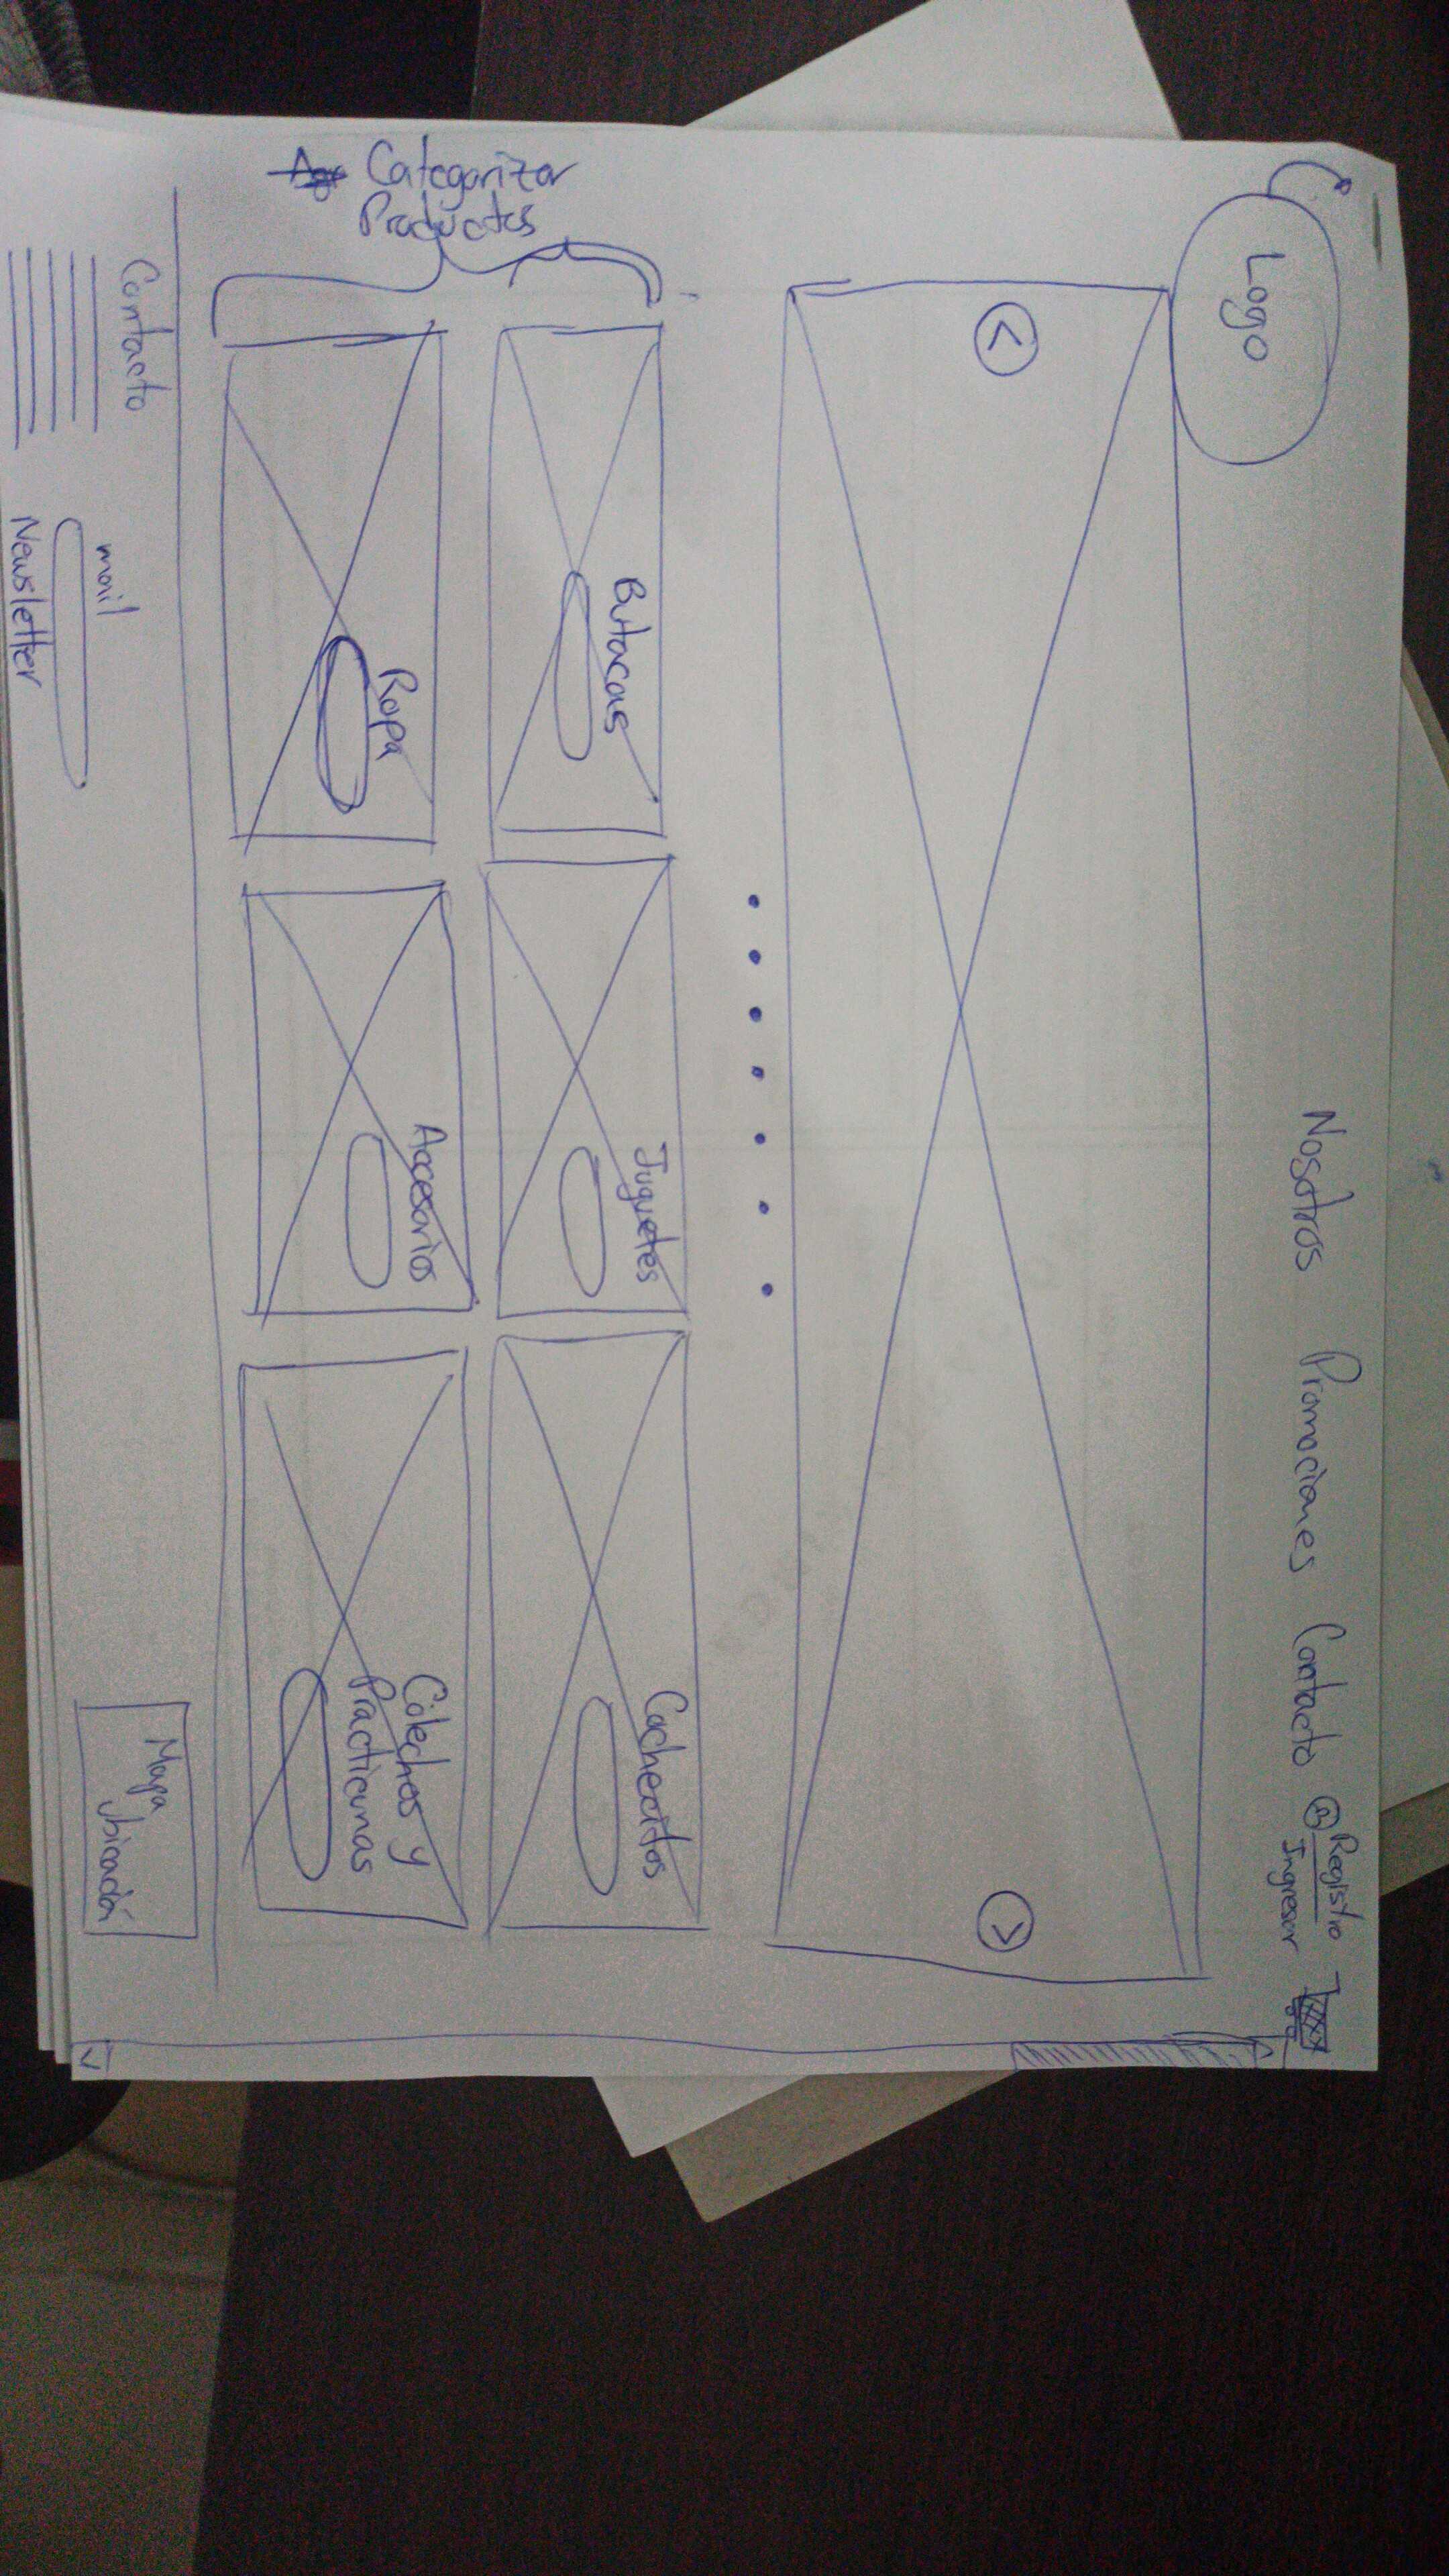 Logo
Nosotros Promociones Contacto @ Registro
Ingresar
< >
Categorizar
Productos
Butacas
Juguetes
Cochecitos
Ropa
Accesorios
Colechos y
Practicunas
Contacto
mail
Newsletter
Mapa
Ubicación